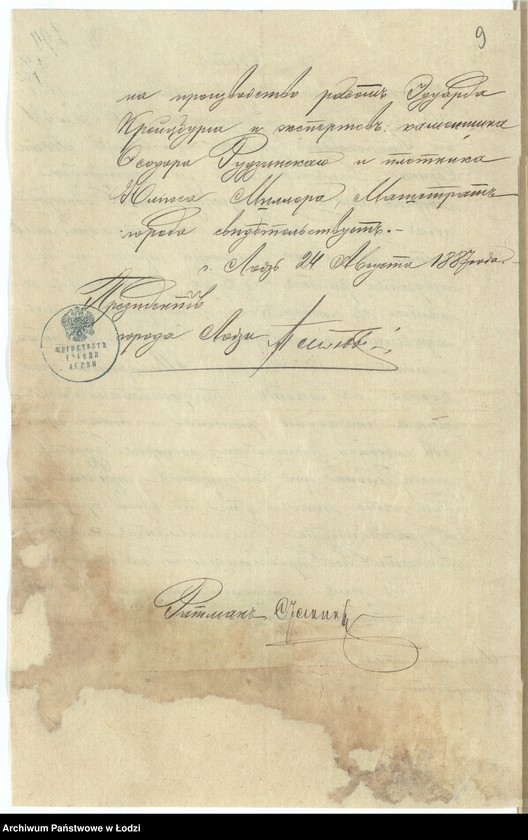 9
на производство работъ Эдуарда
Крейцбурга и экспертовъ: каменьщика
Ѳеодора Рудзинскаго и плотника
Юлiюса Миллера, Магистратъ
города свидѣтельствуетъ.-
г. Лодзь 24 Августа 1887 года.-
Президентъ
города Лодзи
МАГИСТРАТЪ
ГОРОДА
ЛОДЗИ
Ратманъ
Archiwum Państwowe w Łodzi